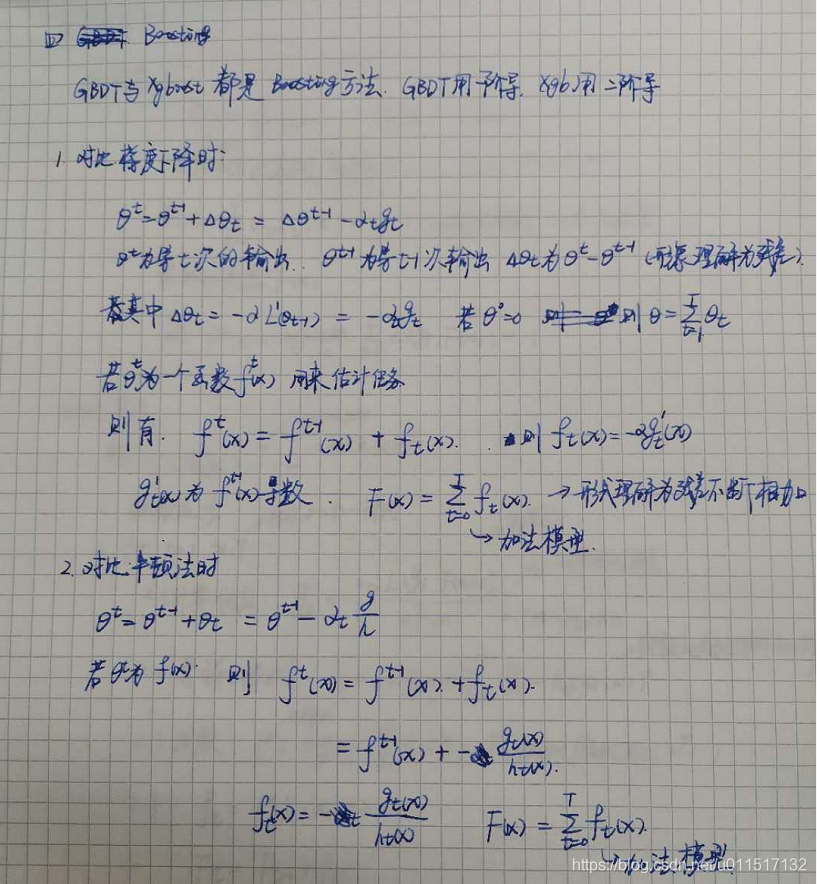 四 Boosting
GBDT与Xgboost 都是 Boosting方法. GBDT用一阶导, Xgb用二阶导
1. 对比梯度下降时:
θ^t=θ^{t-1}+Δθ_t = Δθ^{t-1} -α_t g_t
θ^t为第t次的输出. θ^{t-1}为第t-1次输出 Δθ_t为θ^t-θ^{t-1} (形象理解为残差).
其中 Δθ_t = -αL'(θ_{t-1}) = -α_t g_t 若θ^0=0 则 θ=∑_{t=1}^{T} θ_t
若θ^t为一个函数f^t(x) 用来估计任务
则有. f^t(x) = f^{t-1}(x) + f_t(x). 则 f_t(x)=-αg_t'(x)
g_t'(x) 为 f^{t-1}(x)导数. F(x) = ∑_{t=0}^{T} f_t(x). →形式理解为残差不断相加
↳加法模型.
2. 对比牛顿法时
θ^t= θ^{t-1}+θ_t = θ^{t-1} - α_t g/h
若θ^t为 f(x). 则 f^t(x) = f^{t-1}(x). +f_t(x).
= f^{t-1}(x) + - g_t(x)/h_t(x).
f_t(x) = - g_t(x)/h_t(x) F(x) = ∑_{t=0}^{T} f_t(x).
↳加法模型.
https://blog.csdn.net/u011517132